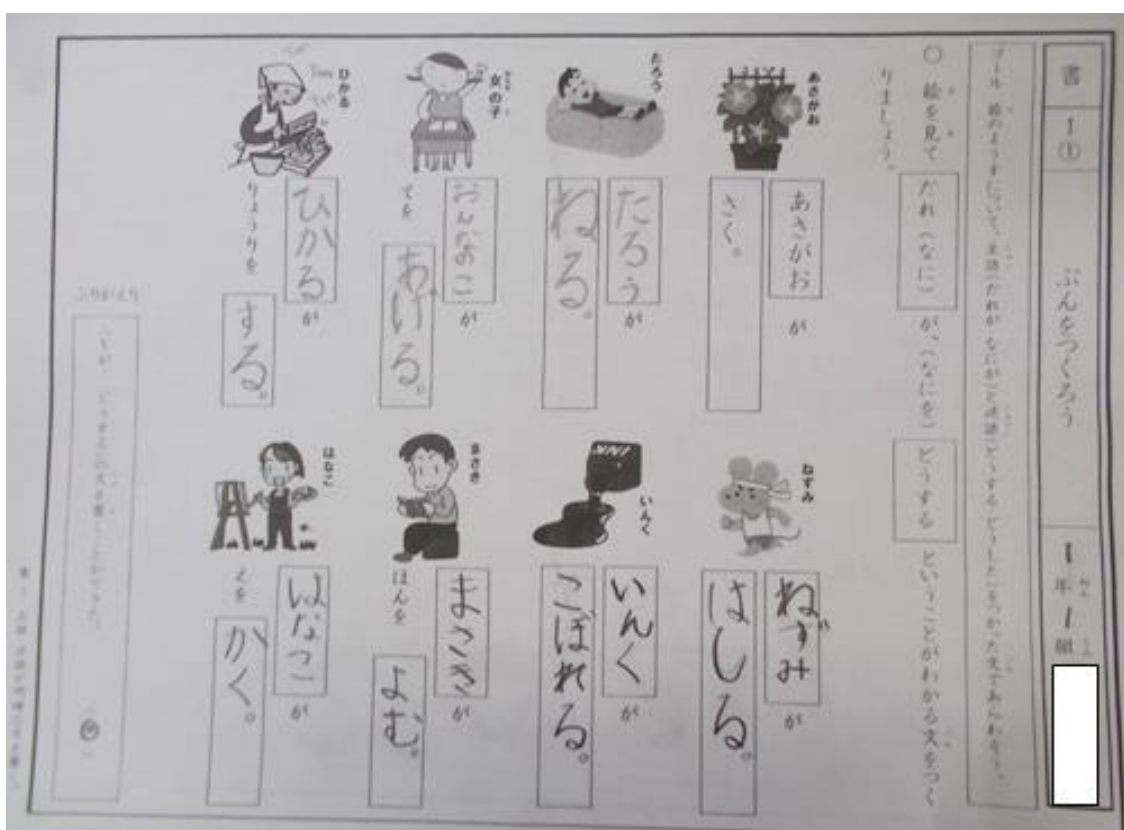 書 1① ぶんをつくろう 1年1組
ゴール 絵のようすについて、主語(だれが なにが)と述語(どうする どうした)をつかった文であらわそう。
○ 絵を見て だれ(なに) が、(なにを) どうする ということがわかる文をつく
りましょう。
あさがお
あさがお が
さく。
たろう
たろう が
ねる。
女の子
おんなのこ が
てを あげる。
ひかる
ひかる が
りょうりを する。
ねずみ
ねずみ が
はしる。
INK
いんく
いんく が
こぼれる。
まさき
まさき が
ほんを よむ。
はなこ
はなこ が
えを かく。
ふりかえり